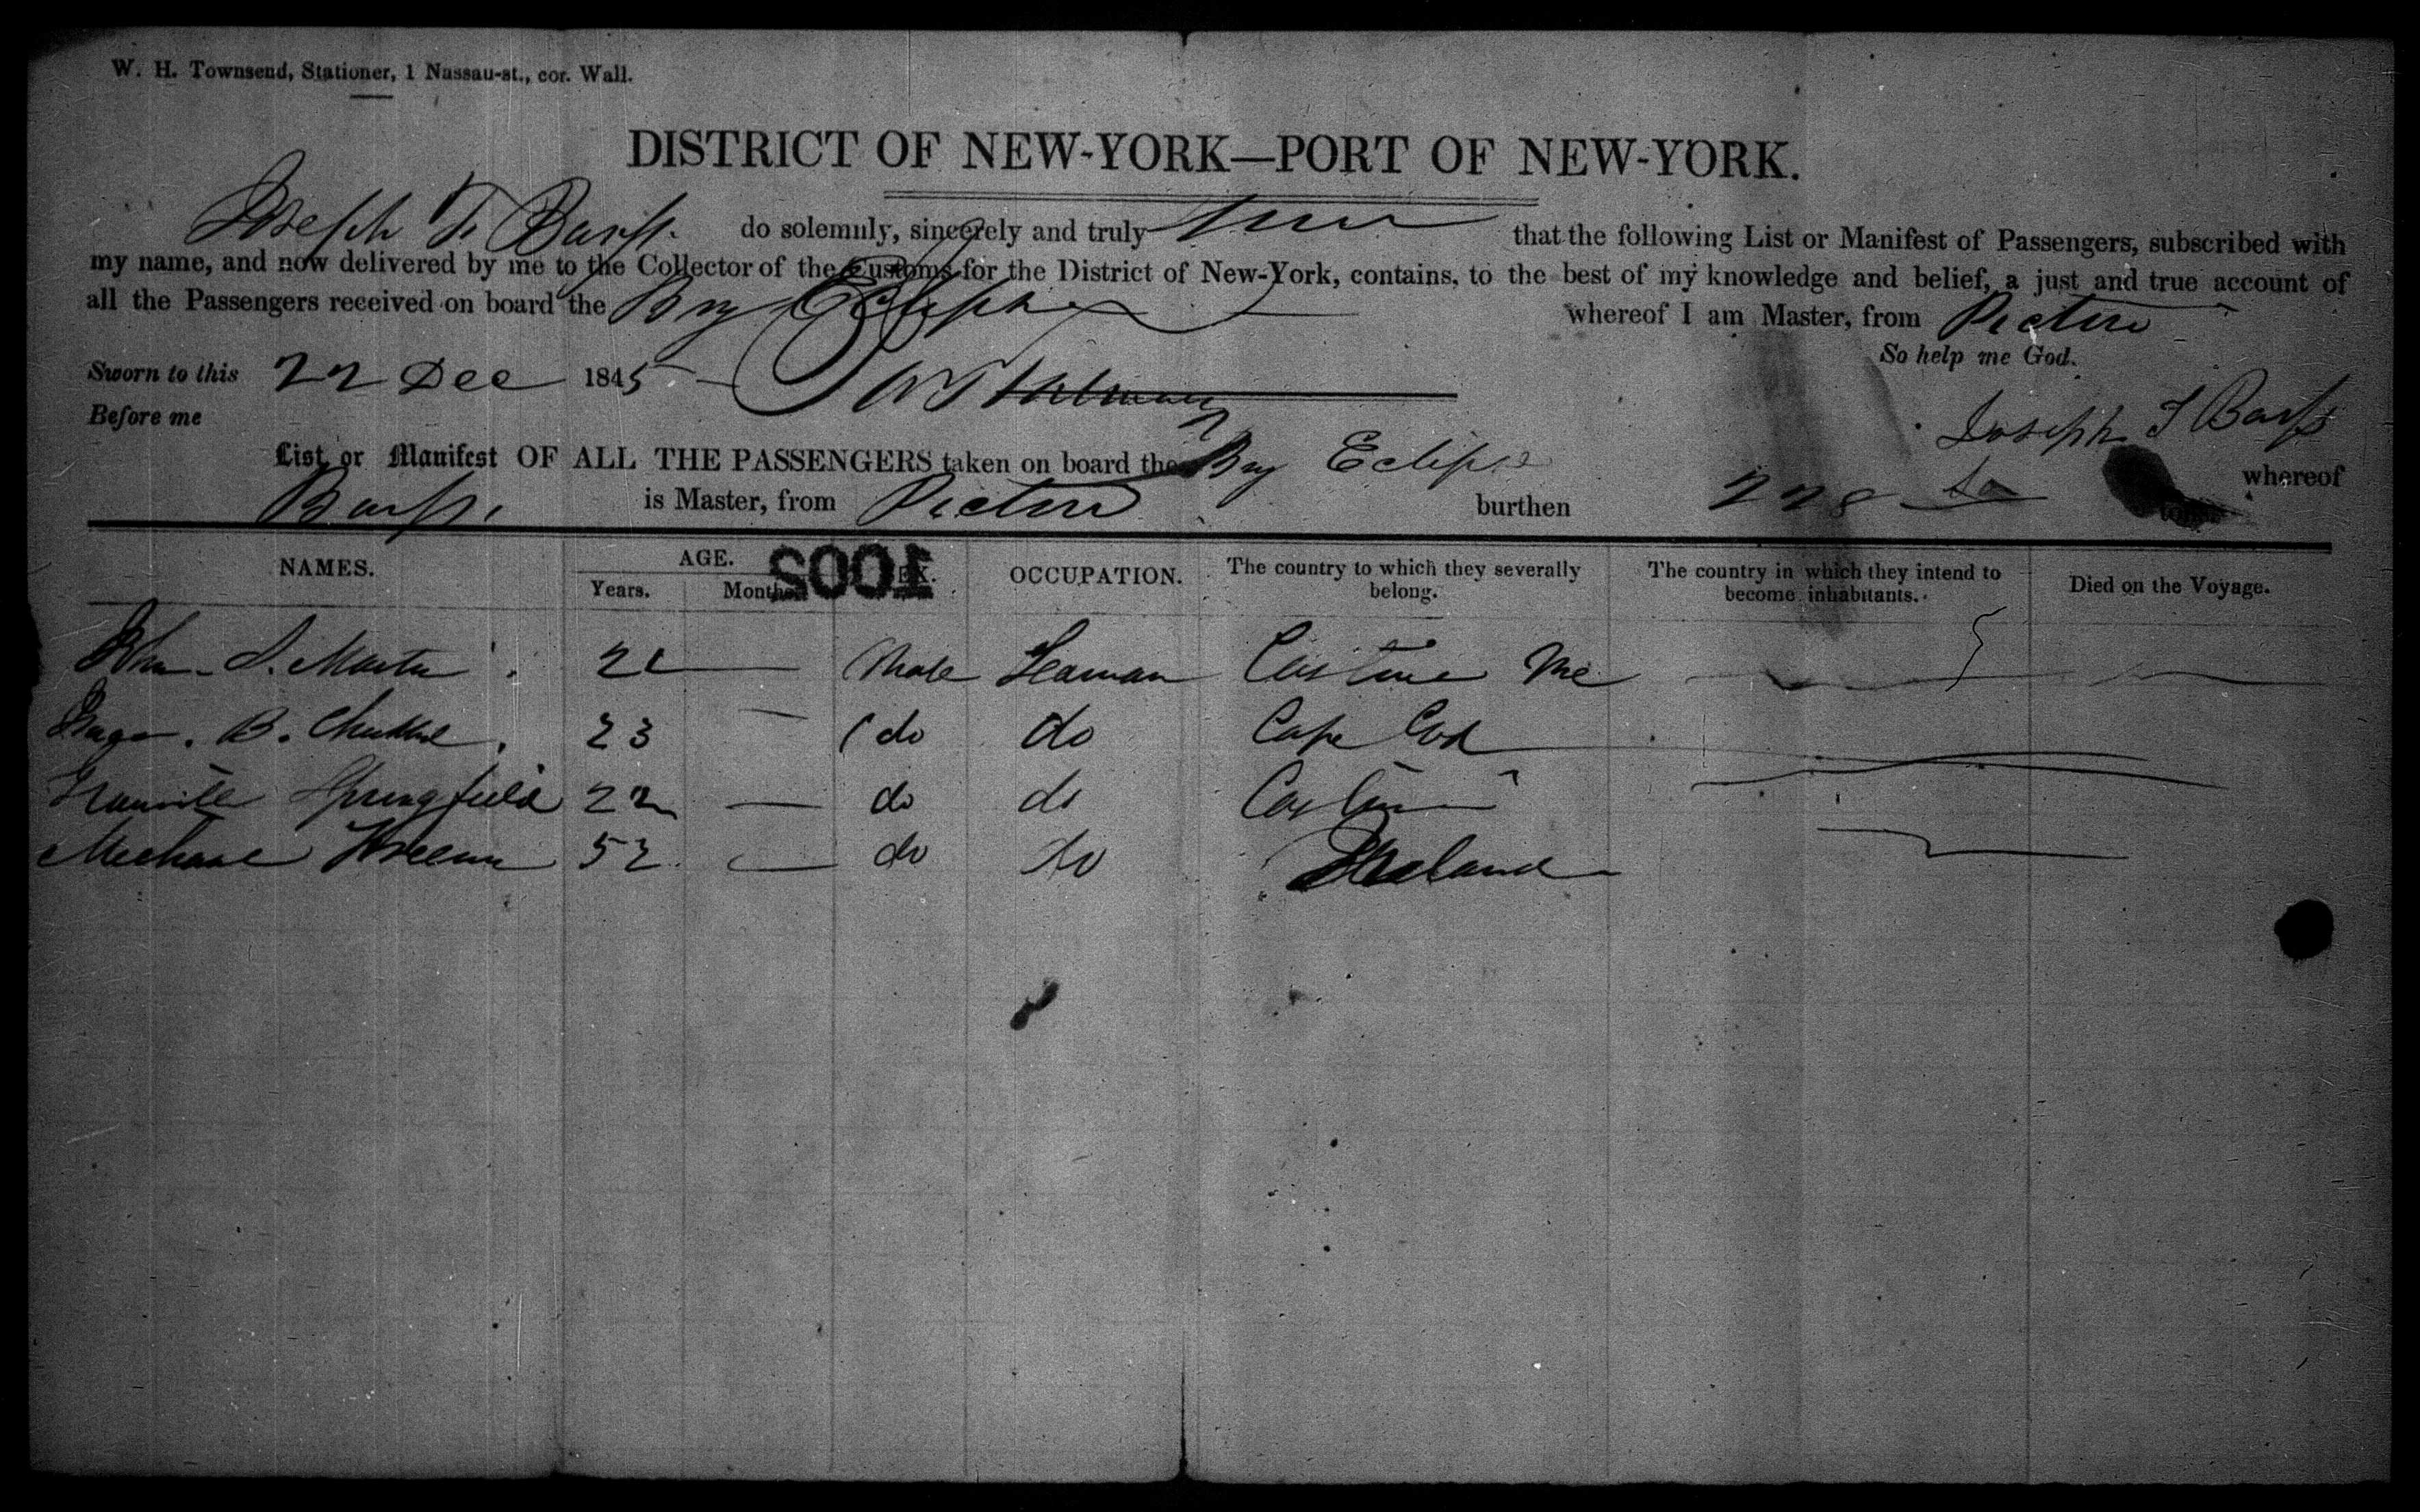 W. H. Townsend, Stationer, 1 Nassau-st., cor. Wall.
DISTRICT OF NEW-YORK—PORT OF NEW-YORK.
Joseph do solemnly, sincerely and truly that the following List or Manifest of Passengers, subscribed with
my name, and now delivered by me to the Collector of the Customs for the District of New-York, contains, to the best of my knowledge and belief, a just and true account of
all the Passengers received on board the Brig Eclipse whereof I am Master, from Pictou
So help me God.
Sworn to this 22 Dec 1845
Before me
Joseph
List or Manifest OF ALL THE PASSENGERS taken on board the Brig Eclipse whereof
is Master, from Pictou burthen 228 tons
NAMES. AGE. SEX. OCCUPATION. The country to which they severally belong. The country in which they intend to become inhabitants. Died on the Voyage.
Years. Months.
1002
Martin 21 Male Seaman Castine Me
B. 23 do do Cape Cod
Springfield 22 do do Castine
Michael 52 do do Ireland